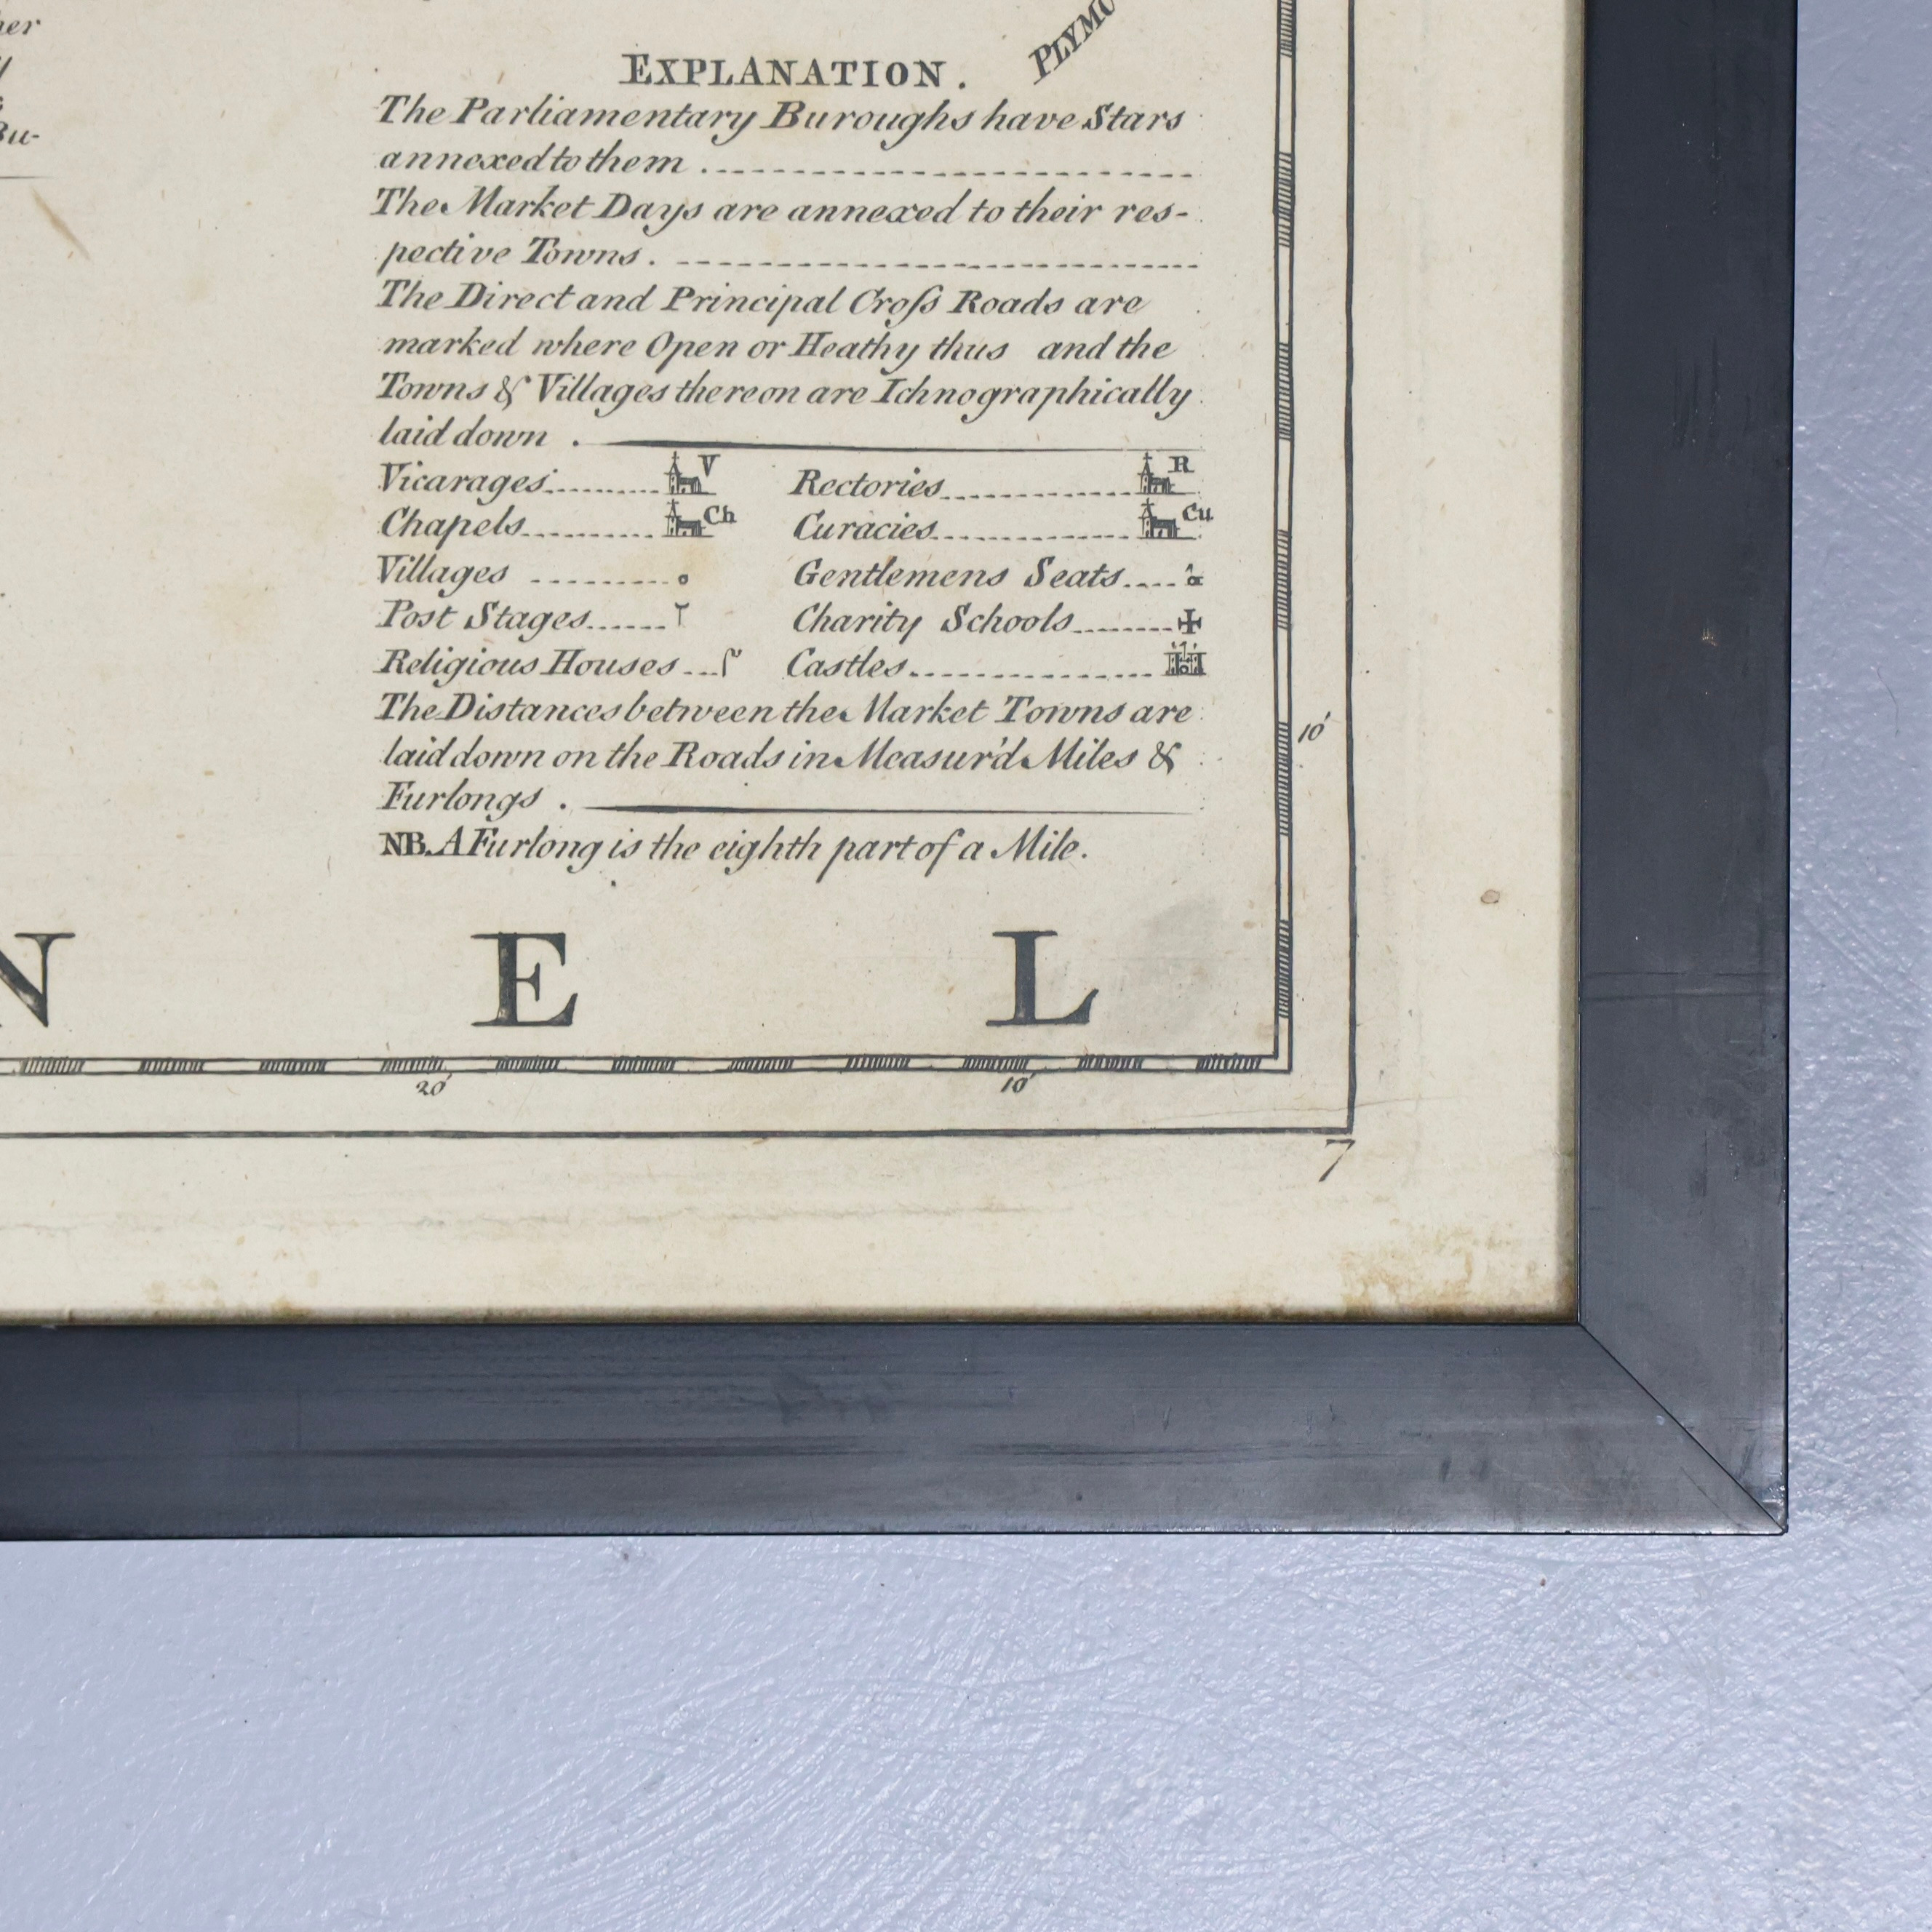 her
Bu-
PLYMO
EXPLANATION.
The Parliamentary Buroughs have Stars
annexed to them.
The Market Days are annexed to their res-
pective Towns.
The Direct and Principal Croſs Roads are
marked where Open or Heathy thus and the
Towns & Villages thereon are Ichnographically
laid down.
Vicarages V Rectories R
Chapels Ch Curacies Cu
Villages Gentlemens Seats
Post Stages Charity Schools
Religious Houses Castles
The Distances between the Market Towns are
laid down on the Roads in Measur'd Miles &
Furlongs.
NB. A Furlong is the eighth part of a Mile.
10'
N E L
20' 10'
7